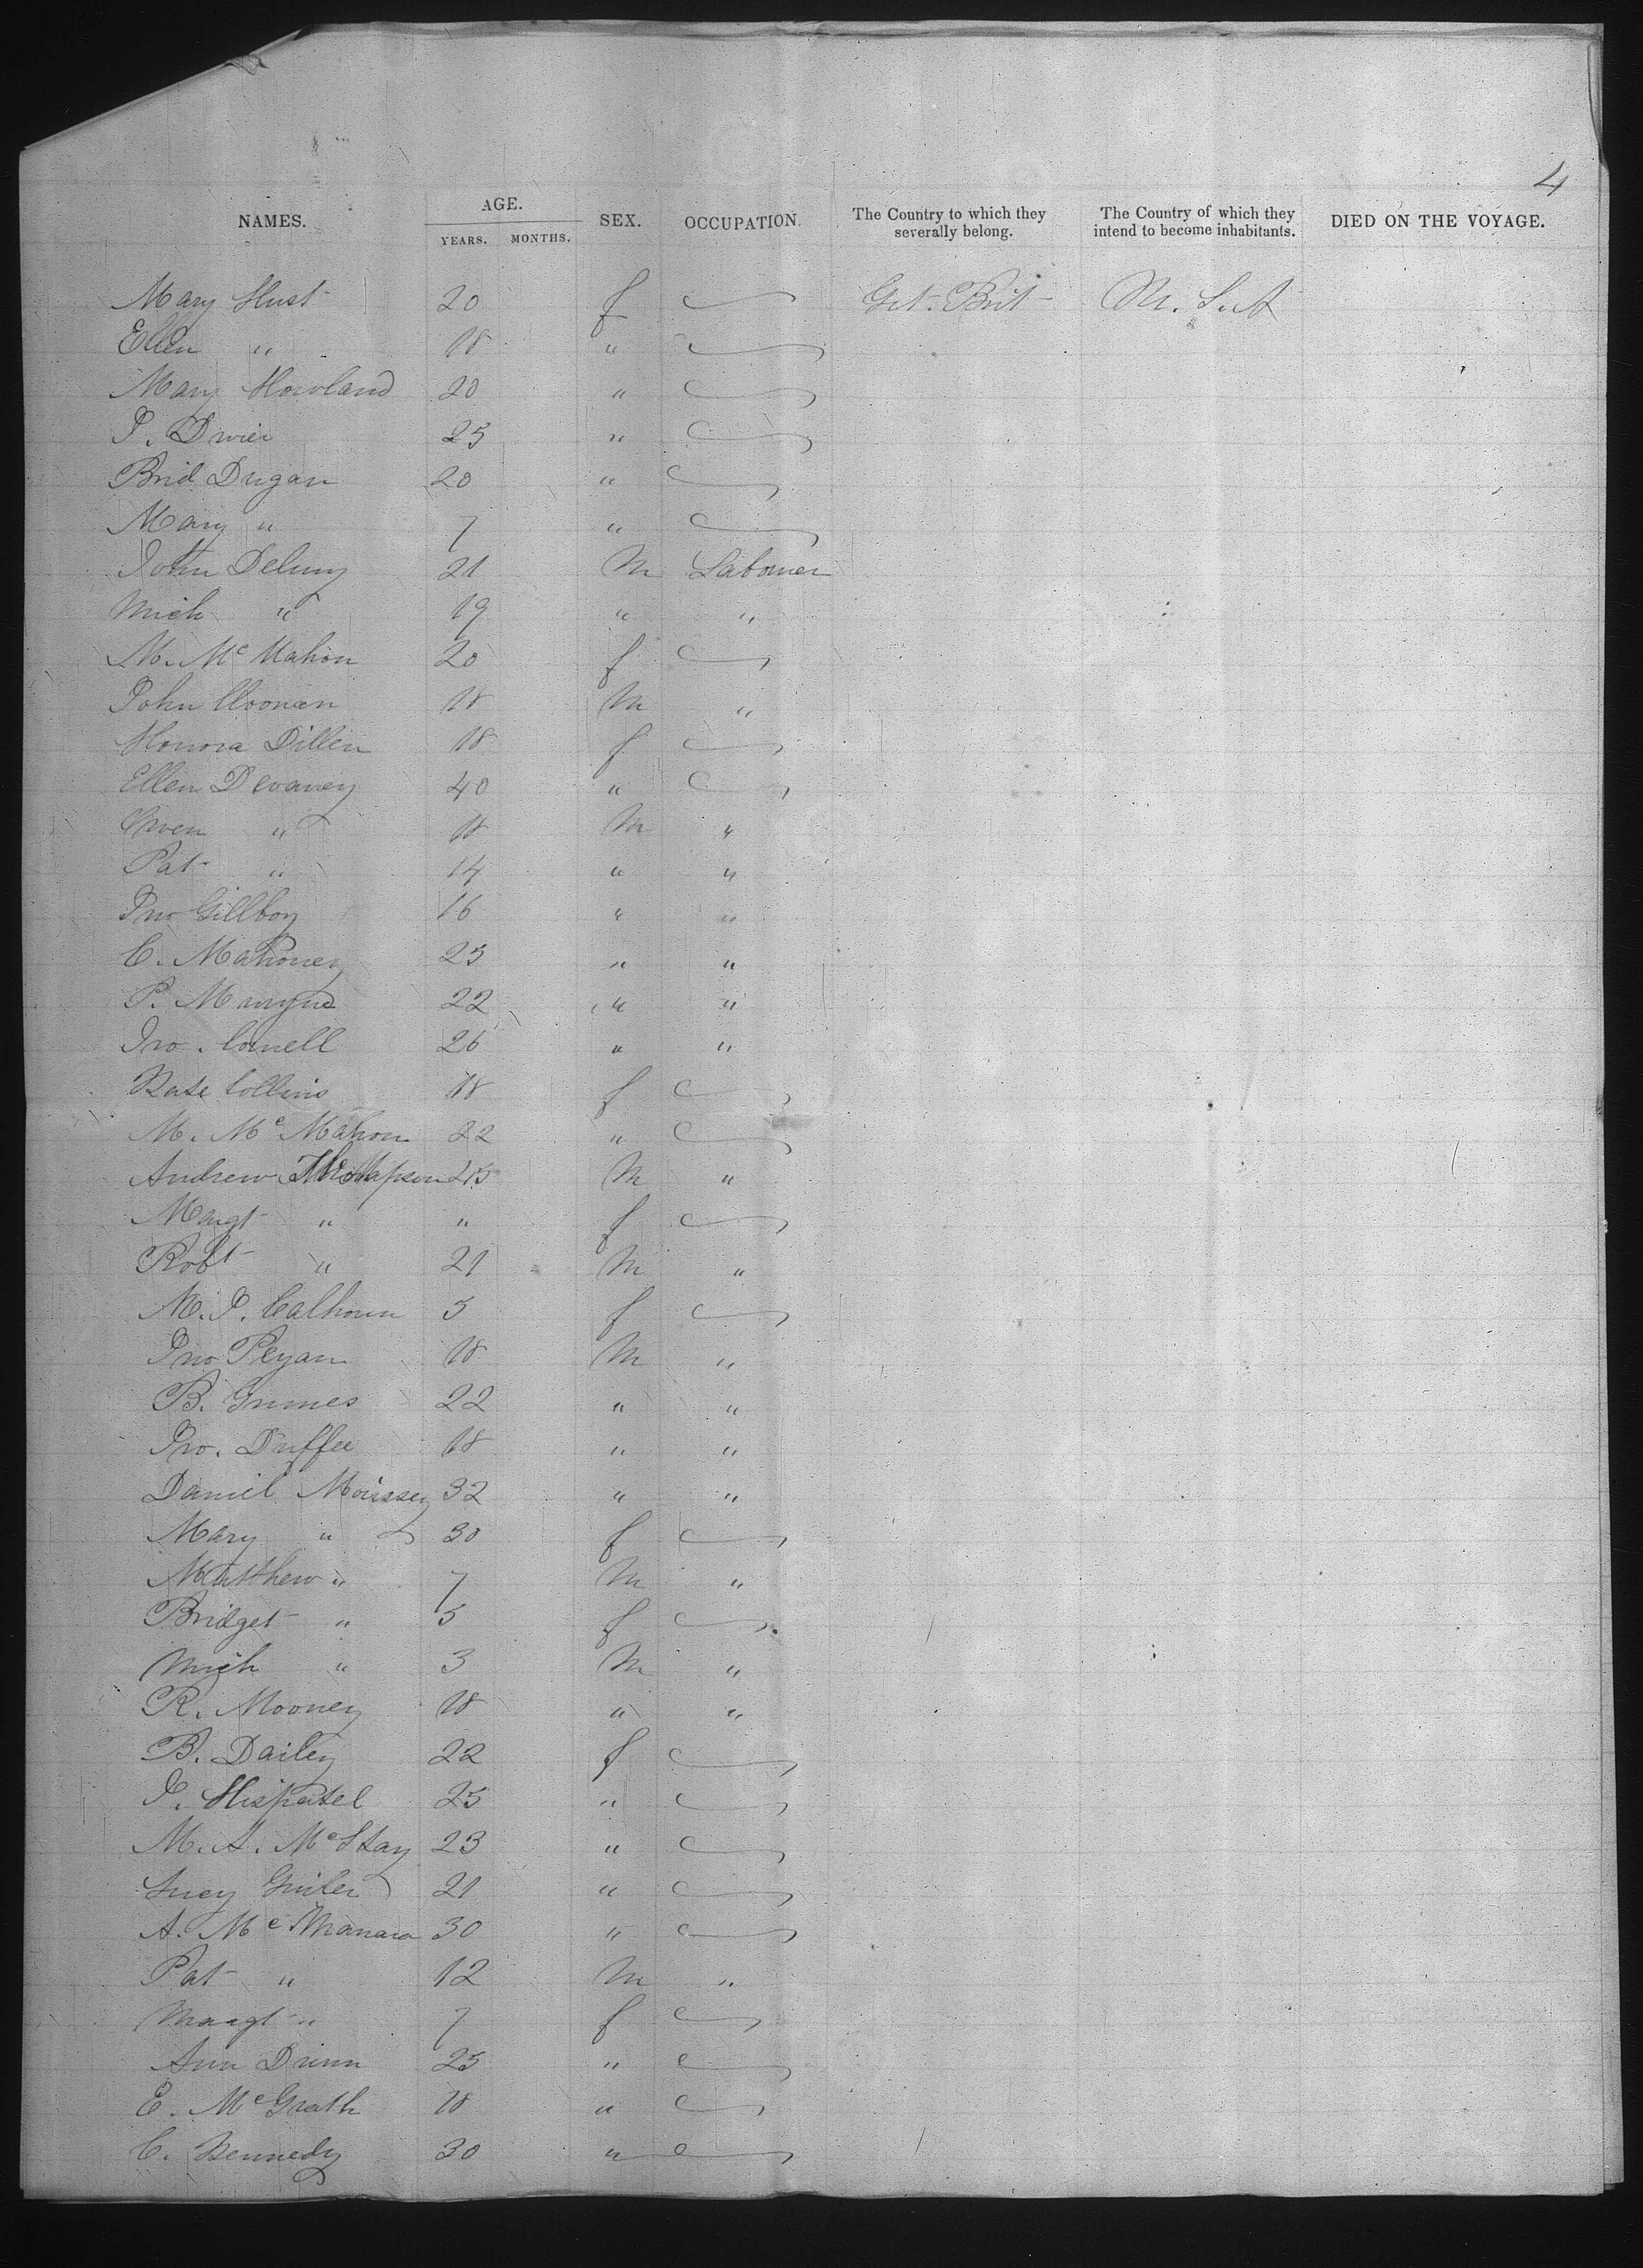 4
NAMES. AGE. YEARS. MONTHS. SEX. OCCUPATION. The Country to which they severally belong. The Country of which they intend to become inhabitants. DIED ON THE VOYAGE.
Mary Hust 20 f Gt. Brit U.S.A
Ellen " 18 "
Mary Howland 20 "
P. Dwier 25 "
Brid Dugan 20 "
Mary " 7 "
John Deluny 21 M Labourer
Mich " 19 " "
M. McMahon 20 f
John Noonan 18 M "
Honora Dillen 18 f
Ellen Devaney 40 "
Owen " 18 M "
Pat " 14 " "
Jno Gillboy 16 " "
C. Mahoney 25 " "
P. 22 " "
Jno. Connell 26 " "
Kate Collins 18 f
M. McMahon 22 "
Andrew Thompson 25 M "
Margt " " f
Robt " 21 M "
M.J. Calhoun 5 f
Jno Regan 18 M "
B. Grimes 22 " "
Jno. Duffee 18 " "
Daniel Morissey 32 " "
Mary " 30 f
Matthew " 7 M "
Bridget " 5 f
Mich " 3 M "
R. Mooney 18 " "
B. Dailey 22 f
25 "
M.A. McStay 23 "
Lucy 21 "
A. McManara 30 "
Pat " 12 M "
Margt " 7 f
Ann Dunn 25 "
E. McGrath 18 "
C. Kennedy 30 "